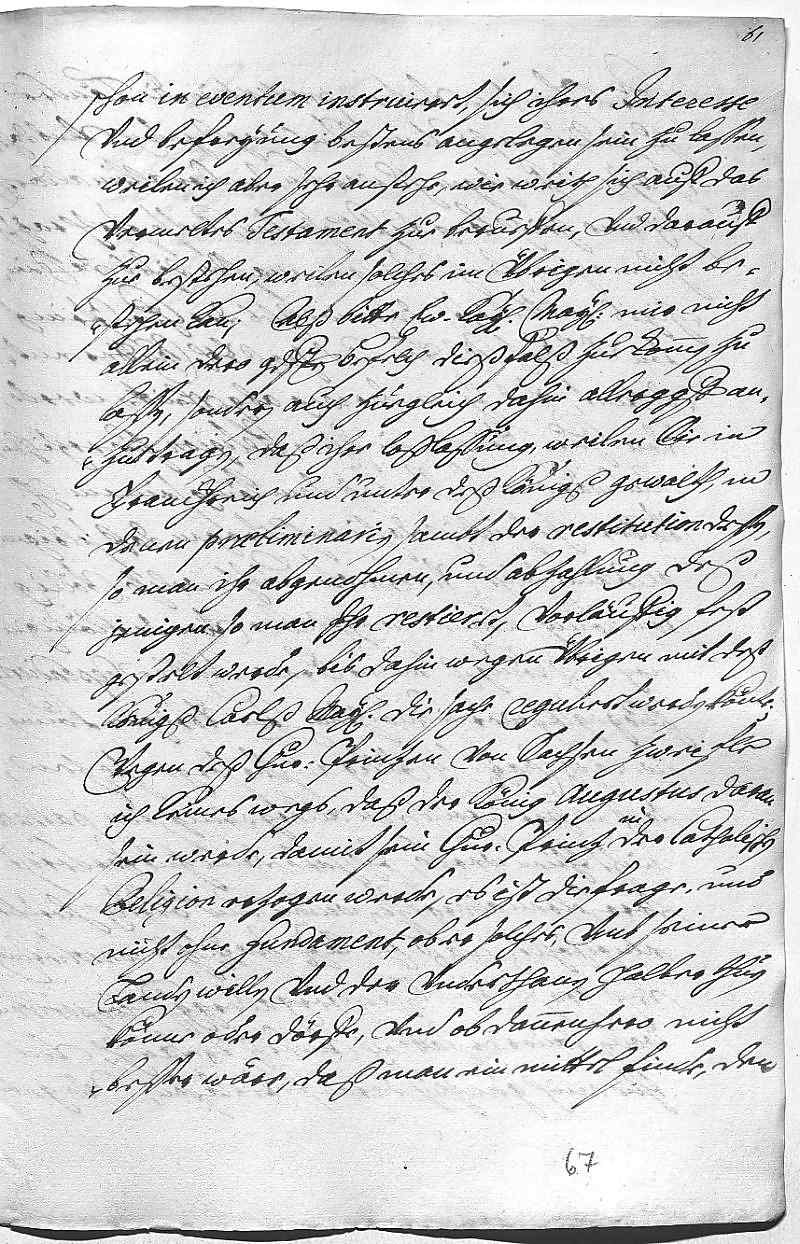 61
schon in eventum instruiert, sich ihers Interesse
Und besorgung bestens angelegen sein zu lassen,
weilen ich aber sehr anstehe, wie weith sich auf das
Testament zu beruffen, Und darauf
zu bestehen, weilen solches im Übrigen nicht be-
stehen kan; Alß bitte Ew. Kay. May. mir nicht
allein dero gdste befelch dießfalß zukomen zu
lassen, sondern auch zugleich dahin allergdst an-
zutragen, daß ihre loßlassung, weilen Sie in
Franckreich und unter deß Königs gewalth, in
denen præliminarien sambt der restitution dessen,
so man ihr abgenohmen, und abzahlung deß
jenigen so man Ihr restiert, Vorläuffig fest
gestelt werde, bis dahin wegen Übrigen mit deß
Königs Carls May. die sach reguliert werden könte.
Wegen deß Chur: Printzen Von Sachsen zweifle
ich keines wegs, daß der König Augustus daran
sein werde, damit sein Chur. Printz in der Catholischen
Religion erzogen werde, es ist die frage, und
nicht ohne fundament, ob er solches, Umb seiner
Landen willen Und der Underthanen halber thun
könne oder dörffe, Und ob dannenhero nicht
besser wäre, daß man ein mittel finde, den
67